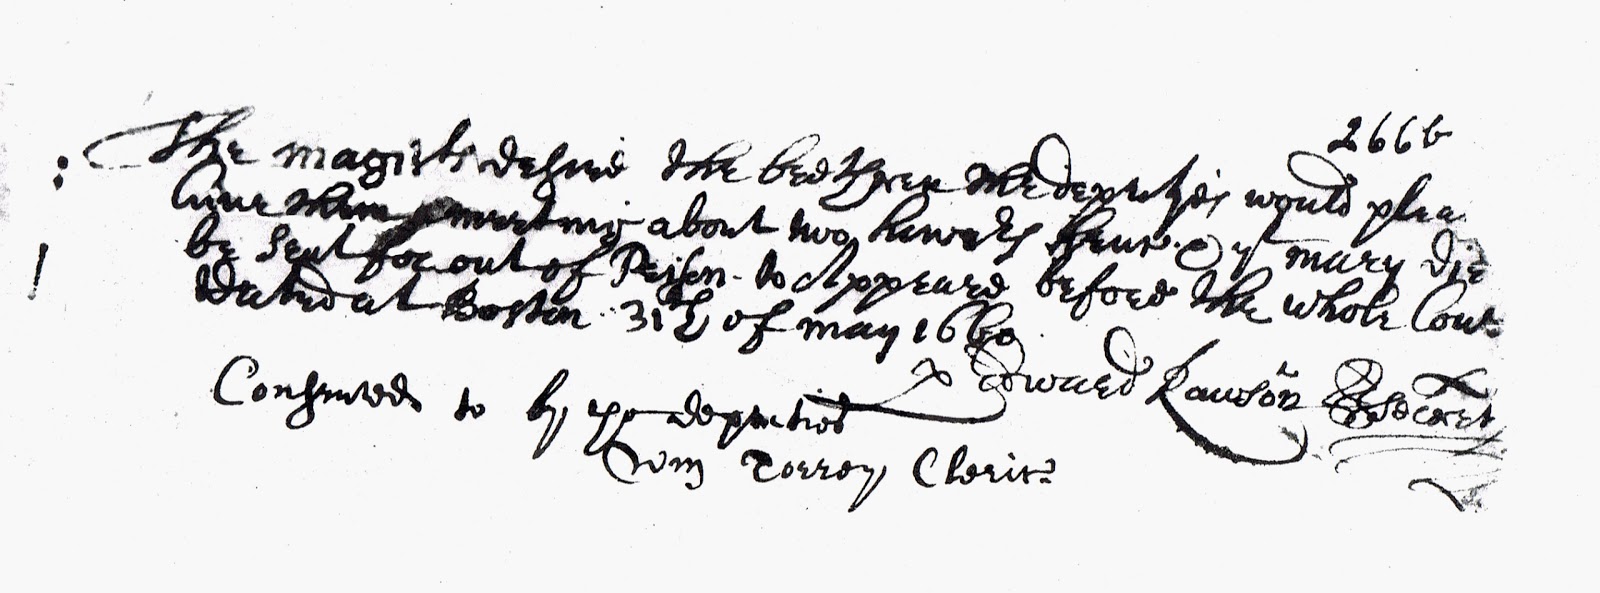 266b
The magists desire the brethren the deputyes would plea
Give them a meeting about two howers hence & yt mary Die
be sent for out of Prison to Appeare before the whole Cour
Dated at Boston 31th of may 1660
p Edward Rawson Secret
Consented to by ye deputies
Wm Torrey Cleric